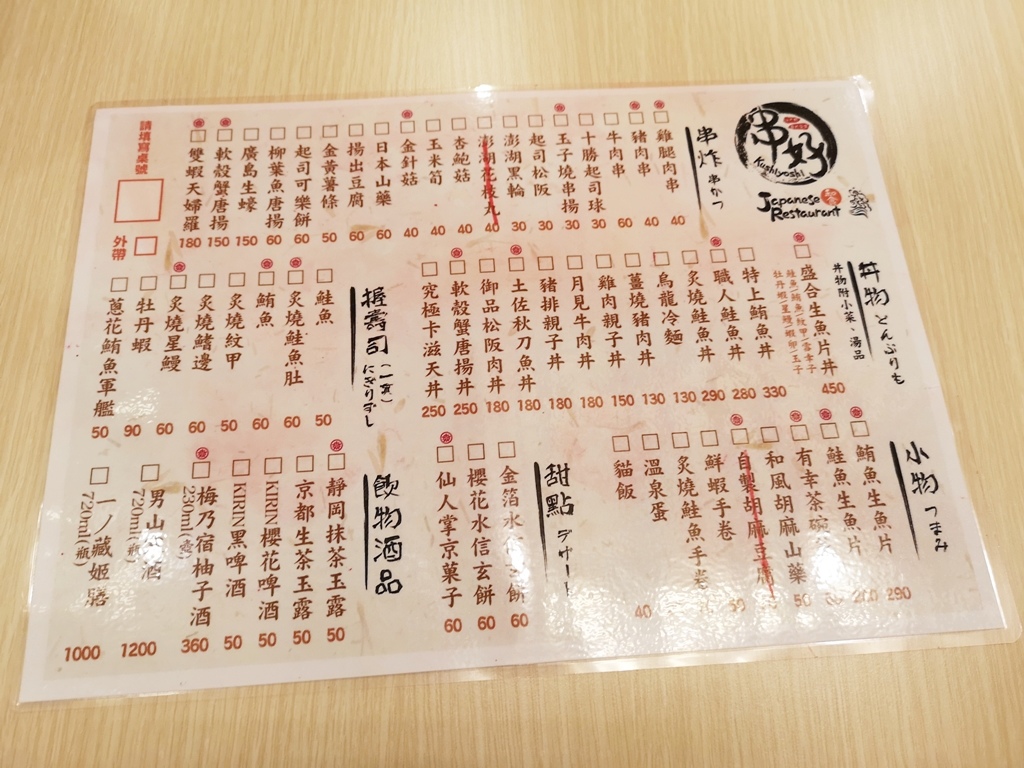 串好
Kushiyoshi
Japanese
Restaurant
串炸 串かつ
雞腿肉串 40
豬肉串 40
牛肉串 60
十勝起司球 30
玉子燒串揚 30
起司松阪 30
澎湖黑輪 30
澎湖花枝丸 40
杏鮑菇 40
玉米筍 40
金針菇 40
日本山藥 60
揚出豆腐 60
金黃薯條 50
起司可樂餅 60
柳葉魚唐揚 60
廣島生蠔 150
軟殼蟹唐揚 150
雙蝦天婦羅 180
請填寫桌號
外帶
丼物 どんぶりも
丼物附小菜、湯品
盛合生魚片丼 450
特上鮪魚丼 330
職人鮭魚丼 280
炙燒鮭魚丼 290
烏龍冷麵 130
薑燒豬肉丼 130
雞肉親子丼 150
月見牛肉丼 180
豬排親子丼 180
土佐秋刀魚丼 180
御品松阪肉丼 180
軟殼蟹唐揚丼 250
究極卡滋天丼 250
握壽司 (一貫) にぎりずし
鮭魚 50
炙燒鮭魚肚 60
鮪魚 60
炙燒紋甲 50
炙燒鰭邊 60
炙燒星鰻 60
牡丹蝦 90
蔥花鮪魚軍艦 50
小物 つまみ
鮪魚生魚片 290
鮭魚生魚片
有幸茶碗
和風胡麻山藥
自製胡麻豆腐
鮮蝦手卷
炙燒鮭魚手卷
溫泉蛋
貓飯 40
甜點 デザート
金箔水信玄餅 60
櫻花水信玄餅 60
仙人掌京菓子 60
飲物酒品
靜岡抹茶玉露 50
京都生茶玉露 50
KIRIN 櫻花啤酒 50
KIRIN 黑啤酒 50
梅乃宿柚子酒 230ml(壺) 360
男山 酒 720ml(瓶) 1200
一ノ藏姬膳 720ml(瓶) 1000